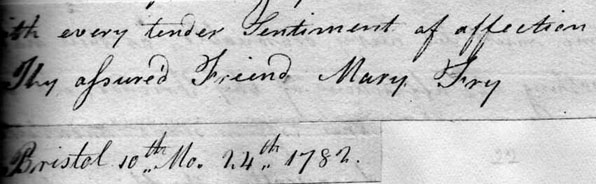 ith every tender Sentiment of affection
Thy assured Friend Mary Fry
Bristol 10th Mo. 24th 1782.